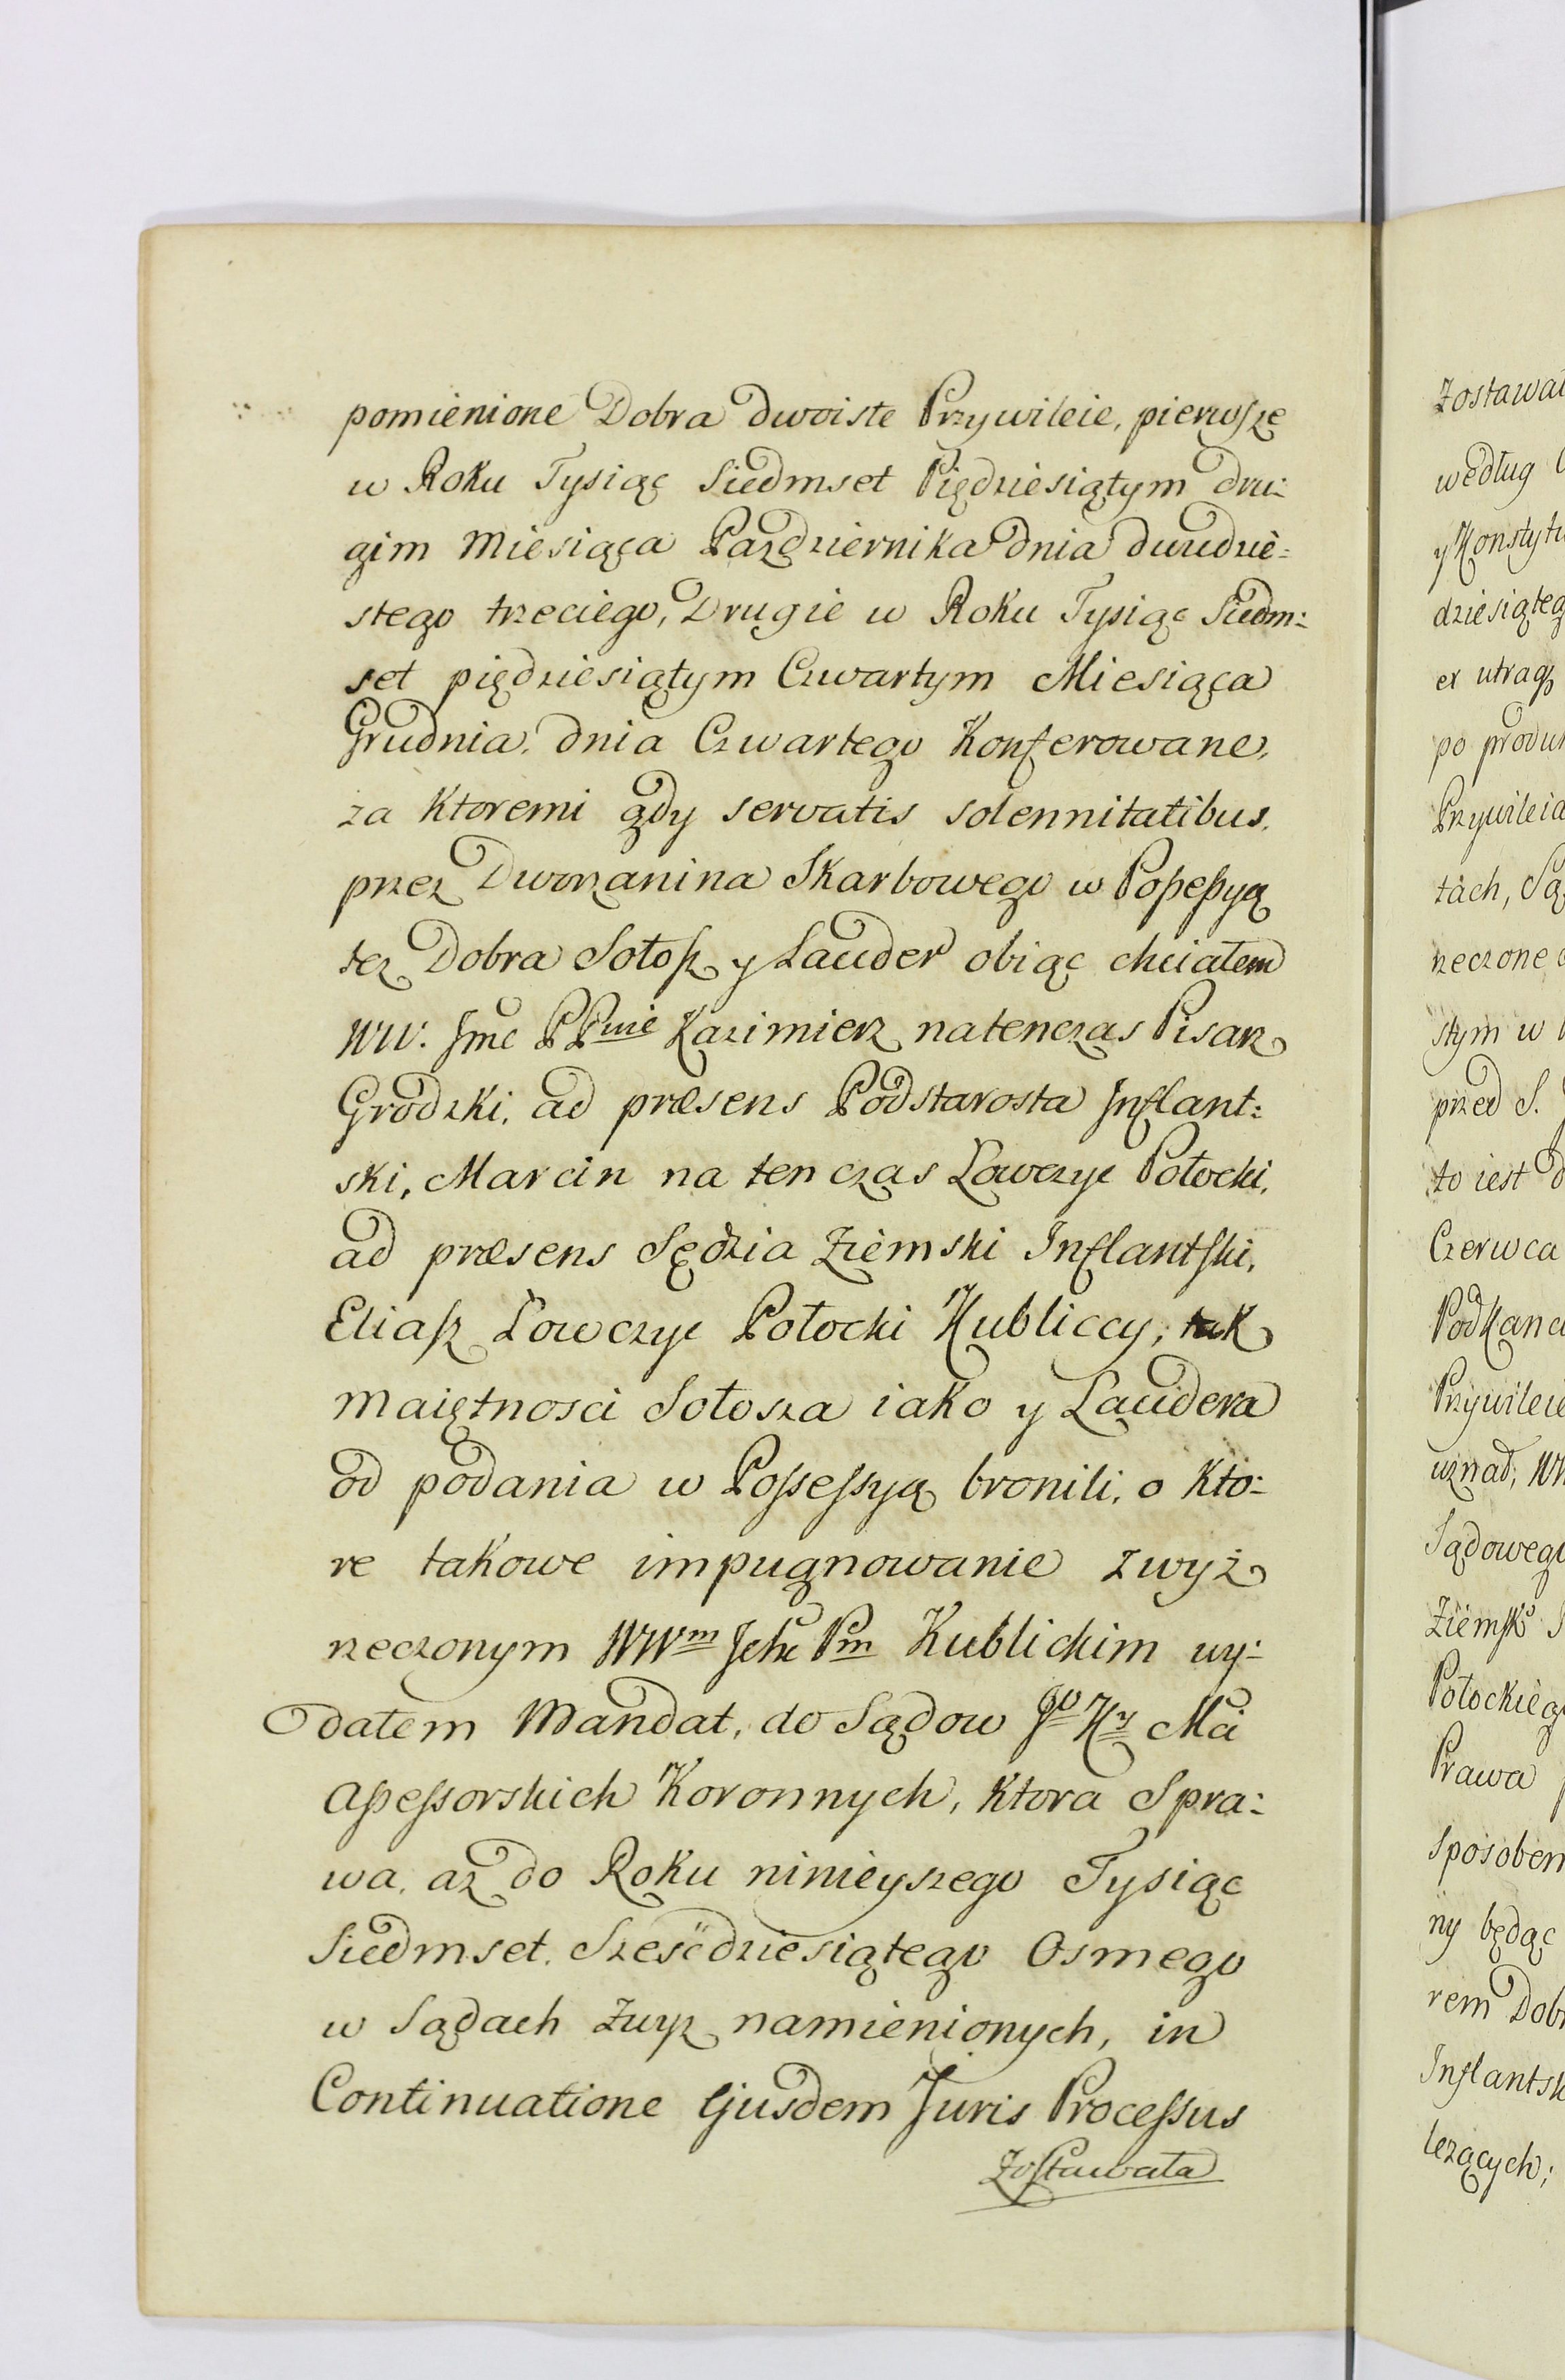 pomienione Dobra dwoiste Przywileie, pierwsze
w Roku Tysiąc Siedmset Piędziesiątym dru-
gim Miesiąca Pazdziernika dnia dwudzie-
stego trzeciego, Drugie w Roku Tysiąc Siedm-
set piędziesiątym Czwartym Miesiąca
Grudnia, dnia Czwartego Konferowane,
za Ktoremi gdy servatis solennitatibus,
przez Dworzanina Skarbowego w Possessyą
tez Dobra Sołosz y Lauder obiąc chciałem
WW. Jmc PPnie Kazimierz natenczas Pisarz
Grodzki, ad præsens Podstarosta Inflant-
ski, Marcin na ten czas Łowczyc Połocki,
ad præsens Sędzia Ziemski Inflantski,
Eliasz Łowczyc Połocki Kubliccy; tak
maiętnosci Sołosza iako y Laudera
od podania w Possessyą bronili, o Kto-
re takowe impugnowanie zwyż
rzeczonym WWm Jchc Pm Kublickim wy-
datem Mandat, do Sądow Jo Kr Mci
Assessorskich Koronnych, Ktora Spra-
wa, az do Roku ninieyszego Tysiąc
Siedmset Sześćdziesiątego Osmego
w Sądach Zwyz namienionych, in
Continuatione Ejusdem Juris Processus
Zostawała
Zostawał
według
y Konstytu
dziesiąteg
ex utraq
po produk
Przywileia
tach, Są
rzeczone
stym w
przed S.
to iest d
Czerwca
Podkanc
Przywileie
uznał, WW
Sądowego
Ziemsk
Połockieg
Prawa
sposobem
ny będąc
rem Dobr
Inflantsk
lezących;